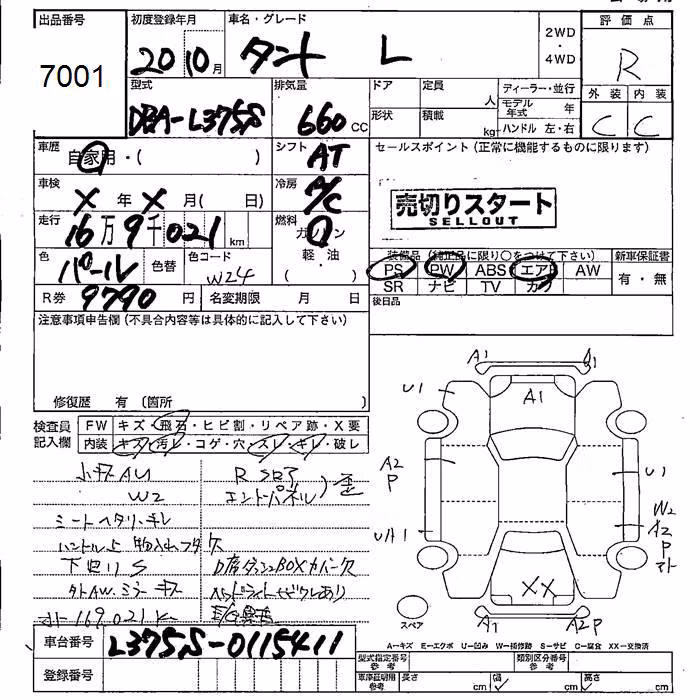 出品番号 初度登録年月 車名・グレード 評価点
7001 20 10月 タント L 2WD・4WD R
型式 排気量 ドア 定員 人 ディーラー・並行 外装 内装
DBA-L375S 660cc 形状 積載 kg モデル年式 年 C C
ハンドル 左・右
車歴 自家用・( ) シフト AT セールスポイント(正常に機能するものに限ります)
車検 X年X月( 日) 冷房 A/C
売切りスタート
SELLOUT
走行 16万9千021km 燃料 ガソリン・軽・油
色 パール 色替 色コード W24
装備品(純正品に限り○をつけて下さい) 新車保証書
PS PW ABS エアB AW 有・無
SR ナビ TV カワ
R券 9790円 名変期限 月 日 後日品
注意事項申告欄(不具合内容等は具体的に記入して下さい)
修復歴 有(箇所
検査員記入欄 FW キズ・飛石・ヒビ割・リペア跡・X要
内装 キズ・汚レ・コゲ・穴・スレ・キレ・破レ
小キズAU R
W2 エンドパネル)歪
シートヘタリ、キレ
ハンドル上 物入れフタ欠
下回りS D席ダッシュBOXカバー欠
外AW、ミラーキズ ヘッドライトヒビワレあり
メーター169,021km E/G異音
A1 A1
U1 A1
A2
P
U1
UA1
W2
A2
P
XX
スペア A1 A2P
A=キズ E=エクボ U=凹み W=補修跡 S=サビ C=腐食 XX=交換済
車台番号 L375S-0115411
型式指定番号 参考 類別区分番号 参考
登録番号 車庫証明用 参考 長さ cm 幅 cm 高さ cm